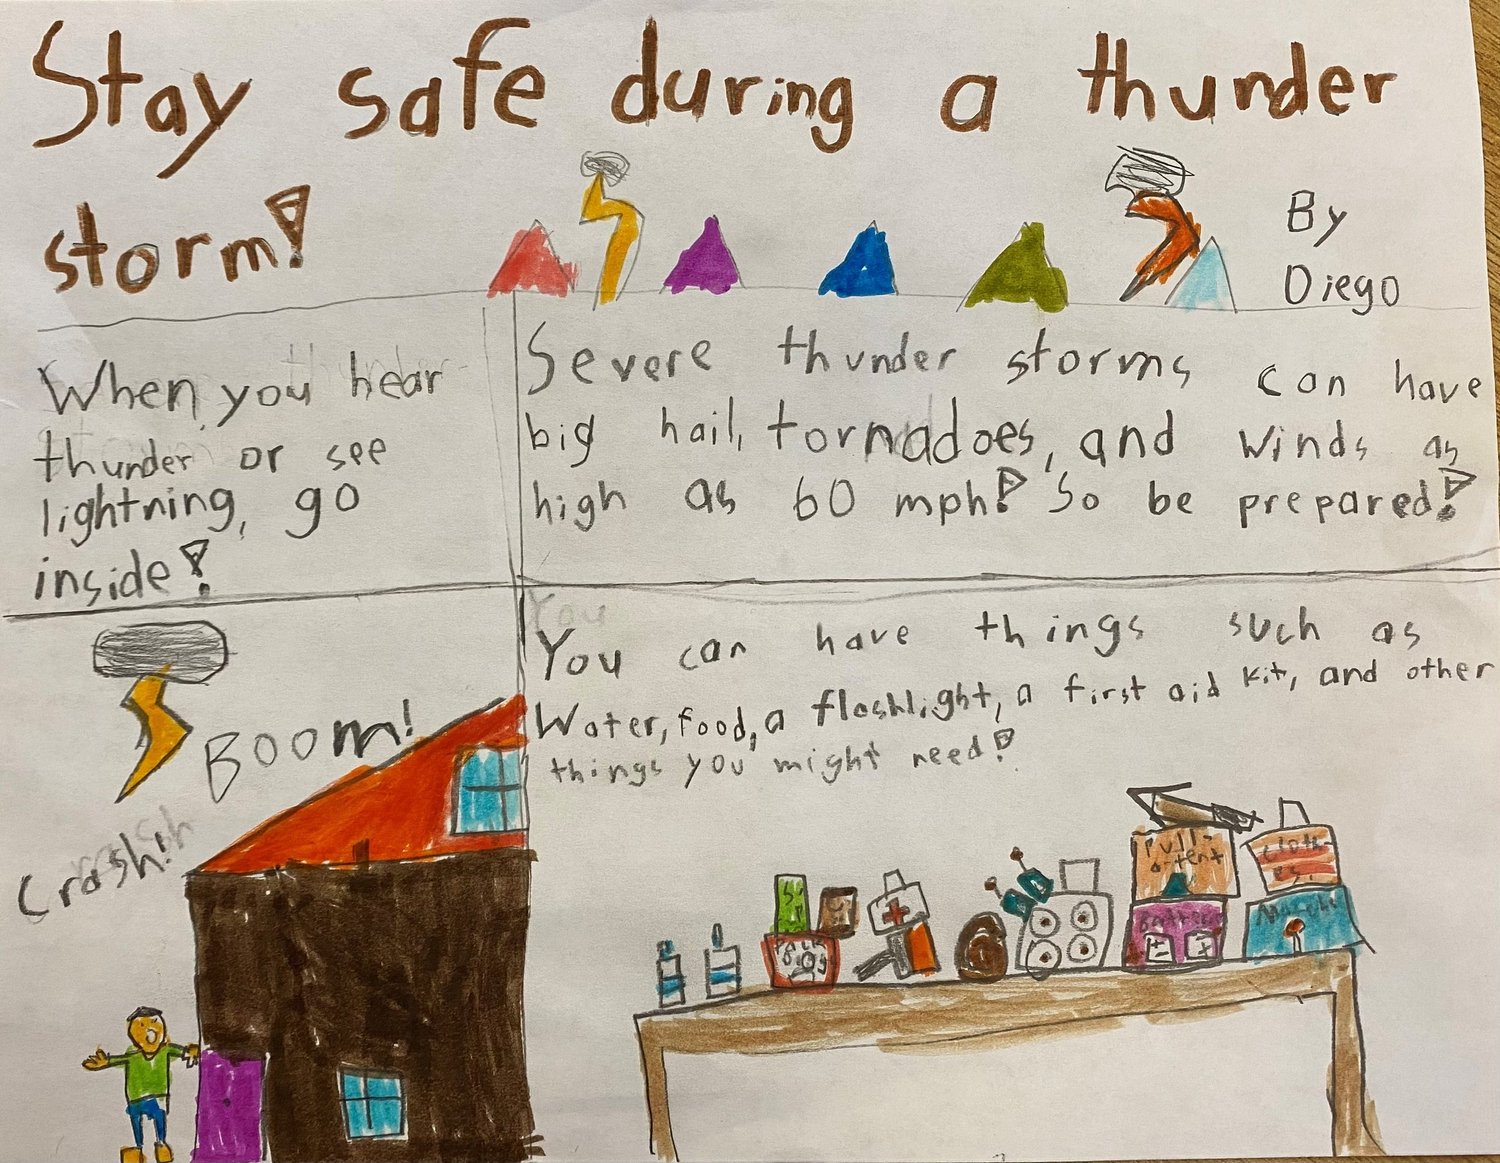 Stay safe during a thunder
storm!
By
Diego
When you hear
thunder or see
lightning, go
inside!
Severe thunder storms can have
big hail, tornadoes, and winds as
high as 60 mph! So be prepared!
BOOM!
Crash!
You can have things such as
Water, food, a flashlight, a first aid kit, and other
things you might need!
Pull-
a-tent
Cloth-
es.